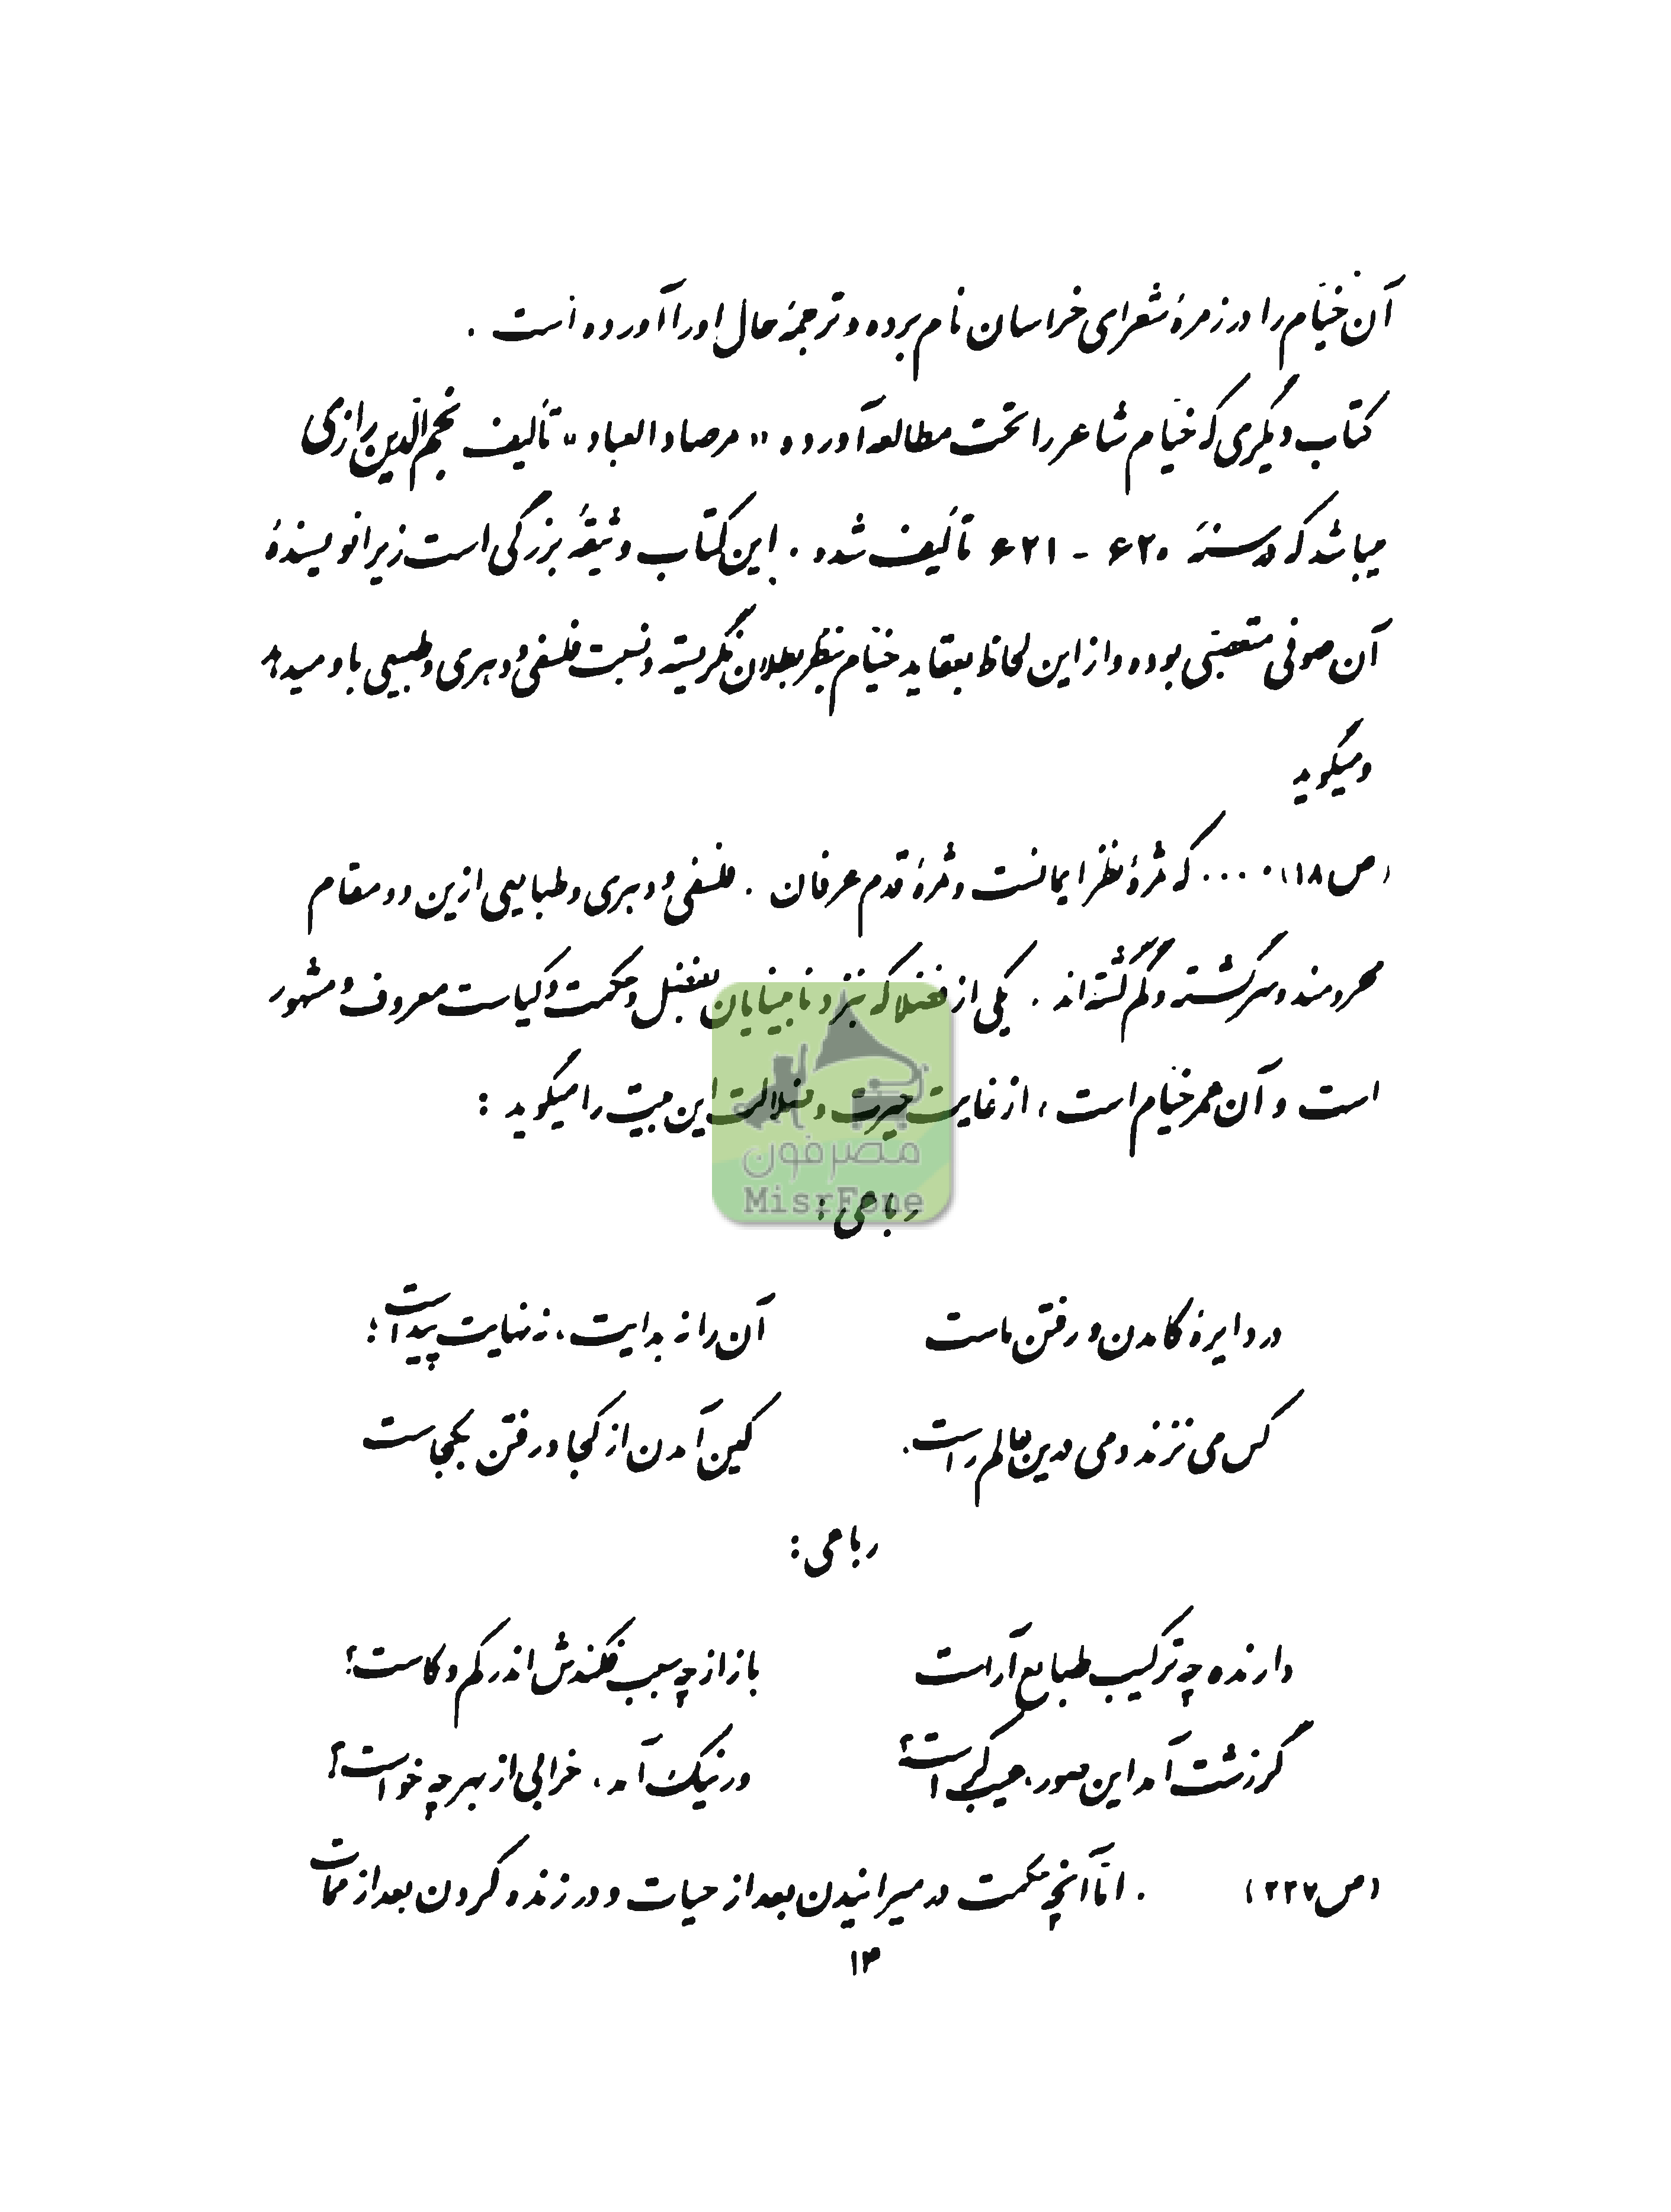 آن خیّام را در زمرهٔ شعرای خراسان نام برده و ترجمهٔ حال او را آورده است .
کتاب دیگری که خیّام شاعر را تحت مطالعه آورده « مرصاد العباد » تألیف نجم الدین رازی
میباشد که در سنهٔ ۶۲۰ - ۶۲۱ تألیف شده . این کتاب وثیقهٔ بزرگی است زیرا نویسندهٔ
آن صوفی متعصّبی بوده و از این لحاظ بعقاید خیّام بنظر بطلان نگریسته و نسبت فلسفی و دهری و طبیعی باو میدهد
و میگوید
(ص ۱۸) .... که ثمرهٔ نظر ایمانست و ثمرهٔ قدم عرفان . فلسفی و دهری و طبایعی ازین دو مقام
محرومند و سرگشته و گم گشته‌اند . یکی از فضلا که بنزد نابینایان بفضل و حکمت و کیاست معروف و مشهور
است و آن عمر خیّام است ، از غایت حیرت و ضلالت این بیت را میگوید :
مصرفون
MisrFone
رباعی :
در دایرهٔ کامدن و رفتن ماست آن را نه بدایت ، نه نهایت پیداست ؛
کس می نزند دمی درین عالم راست . کین آمدن از کجا و رفتن بکجاست
رباعی :
دارنده چو ترکیب طبایع آراست باز از چه سبب فکندش اندر کم و کاست ؟
گر زشت آمد این صور ، عیب کراست ؟ ور نیک آمد ، خرابی از بهر چه خواست ؟
(ص ۲۲۷) . امّا آنچه حکمت در میرانیدن بعد از حیات و در زنده کردن بعد از ممات
۱۳